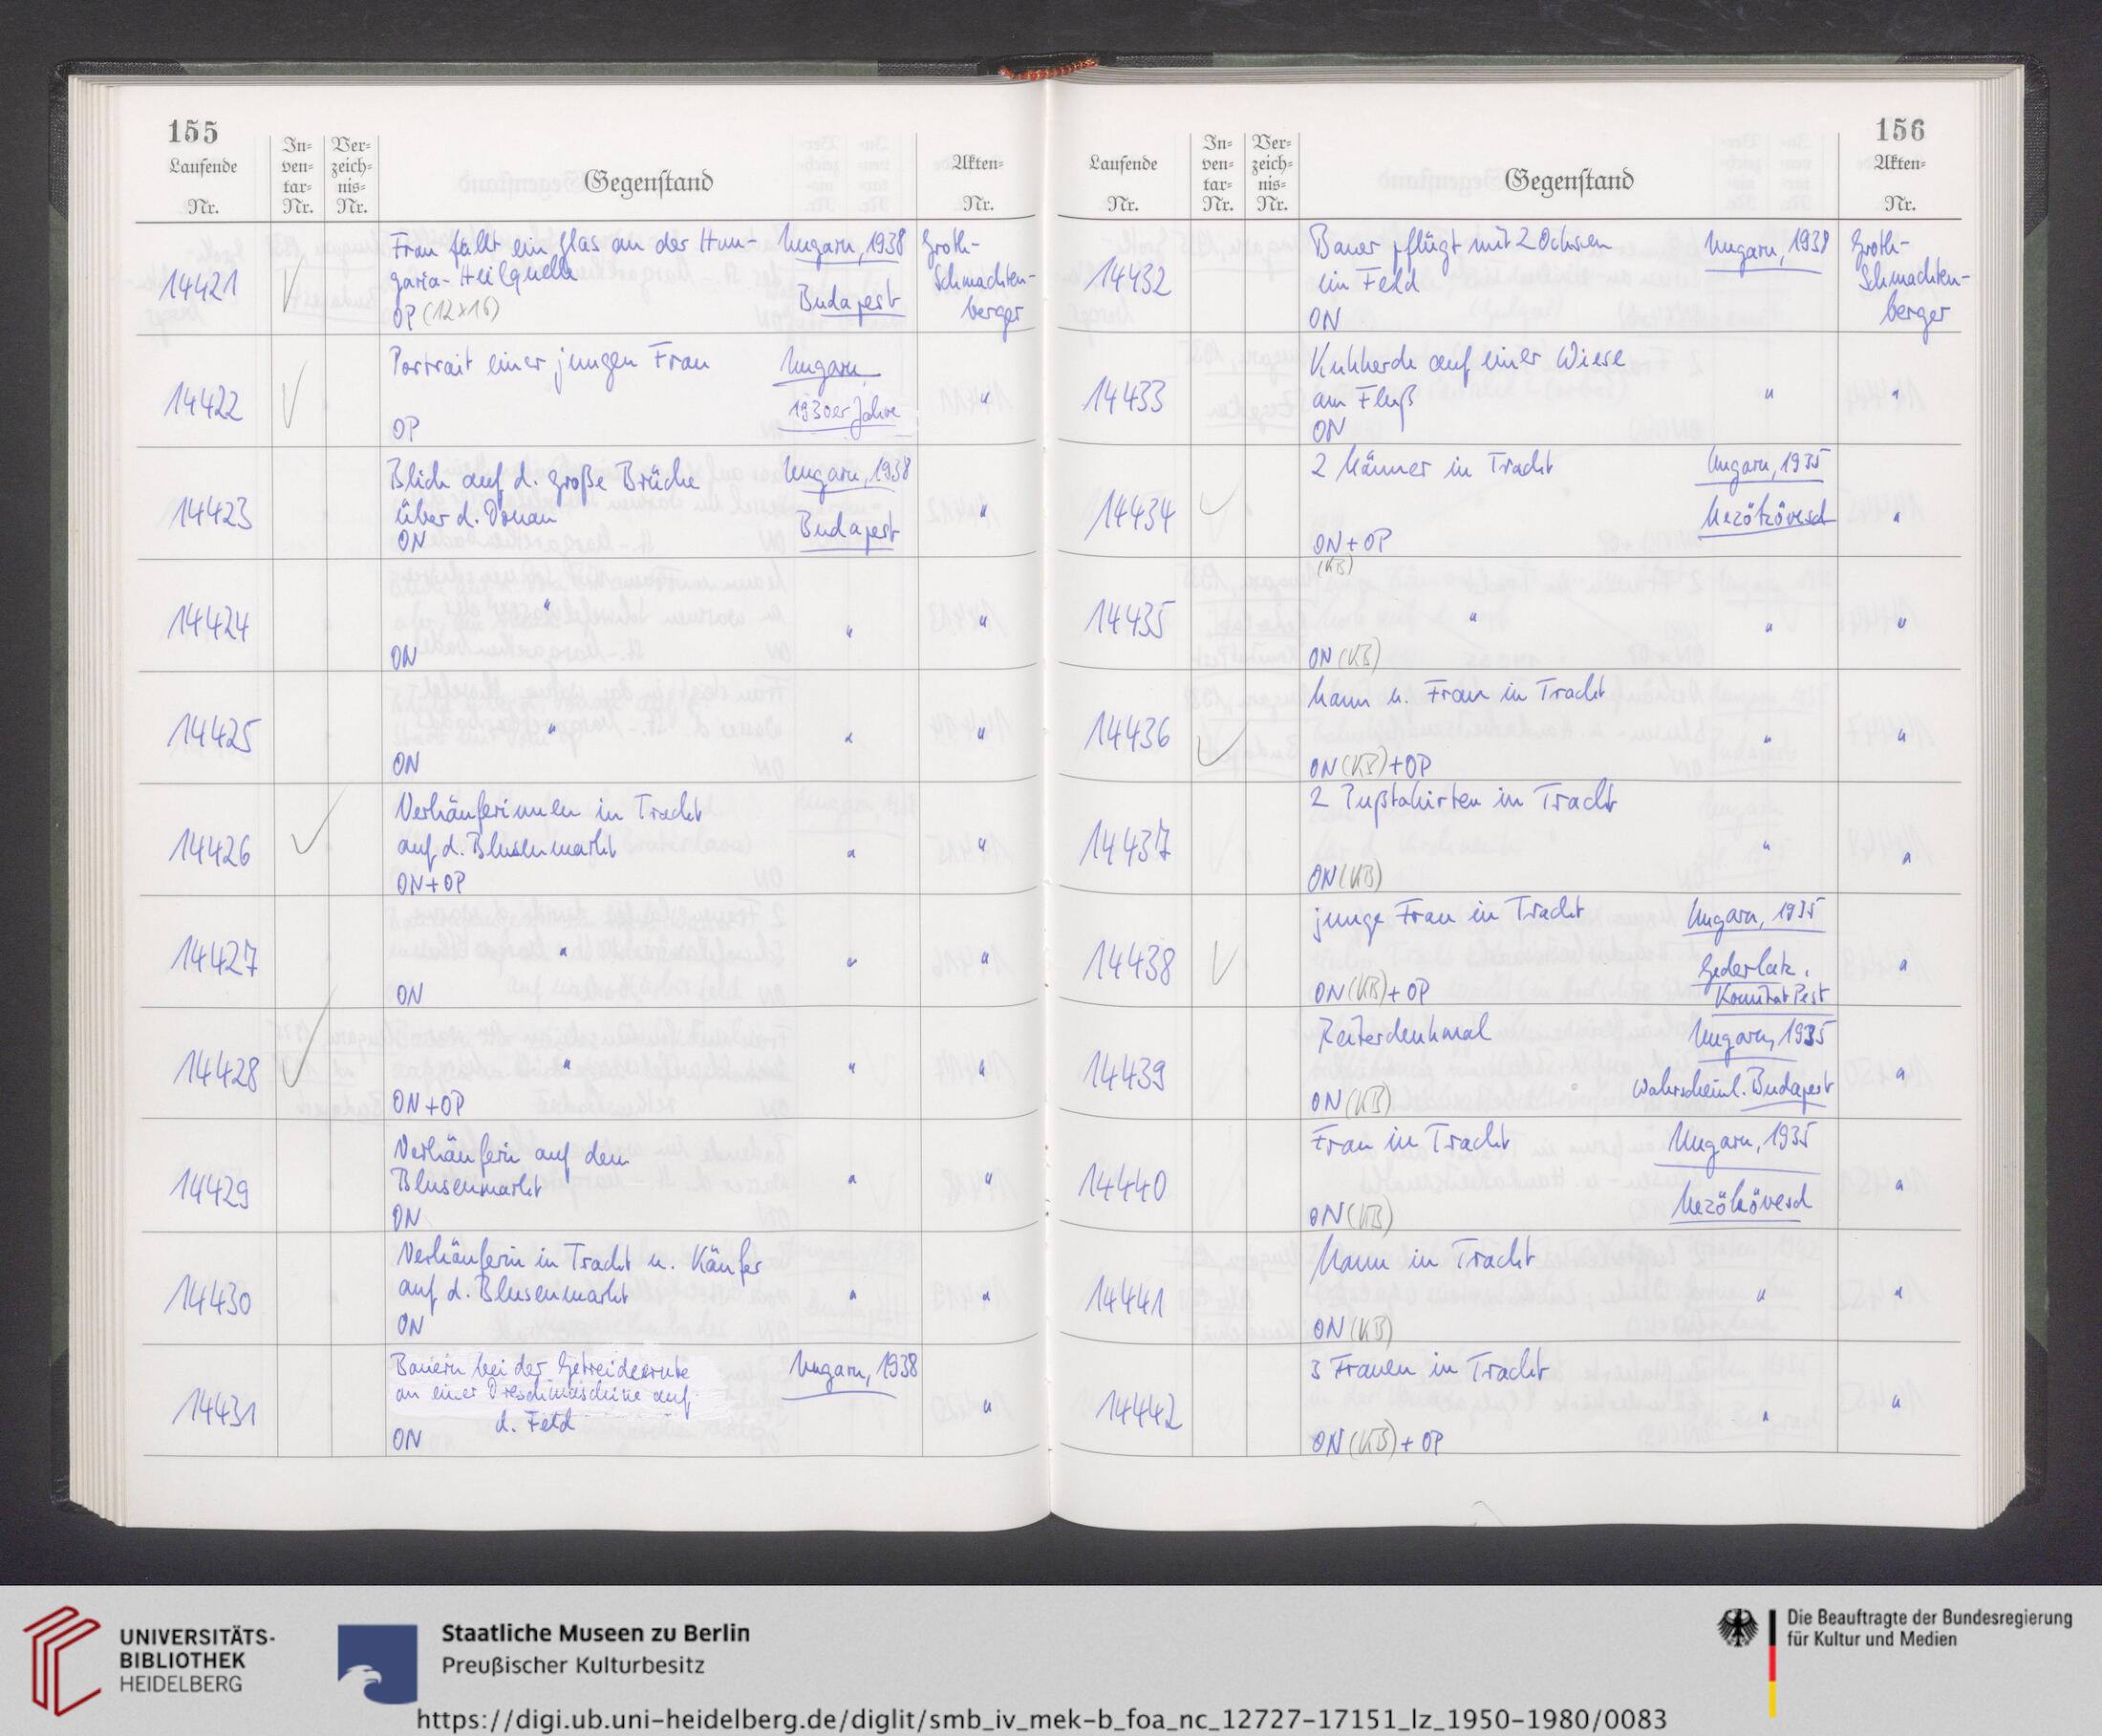 155
Laufende
Nr.
In-
ven-
tar-
Nr.
Ver-
zeich-
nis-
Nr.
Gegenstand
Akten-
Nr.
14421
Frau füllt ein Glas an der Hun-
garia-Heilquelle
OP (12x16)
Ungarn, 1938
Budapest
Groth-
Schmachten-
berger
14422
Portrait einer jungen Frau
OP
Ungarn
1930er Jahre
"
14423
Blick auf d. große Brücke
über d. Donau
ON
Ungarn, 1938
Budapest
"
14424
"
ON
"
"
14425
"
ON
"
"
14426
Verkäuferinnen in Tracht
auf d. Blusenmarkt
ON+OP
"
"
14427
"
ON
"
"
14428
"
ON+OP
"
"
14429
Verkäuferin auf dem
Blusenmarkt
ON
"
"
14430
Verkäuferin in Tracht u. Käufer
auf d. Blusenmarkt
ON
"
"
14431
Bauern bei der Getreideernte
an einer Dreschmaschine auf
d. Feld
ON
Ungarn, 1938
"
156
Laufende
Nr.
In-
ven-
tar-
Nr.
Ver-
zeich-
nis-
Nr.
Gegenstand
Akten-
Nr.
14432
Bauer pflügt mit 2 Ochsen
ein Feld
ON
Ungarn, 1938
Groth-
Schmachten-
berger
14433
Kuhherde auf einer Wiese
am Fluß
ON
"
"
14434
2 Männer in Tracht
ON+OP
(KB)
Ungarn, 1935
Mezökövesd
"
14435
"
ON (KB)
"
"
14436
Mann u. Frau in Tracht
ON (KB)+OP
"
"
14437
2 Pußtahirten in Tracht
ON (KB)
"
"
14438
junge Frau in Tracht
ON (KB)+OP
Ungarn, 1935
Gederlak,
Komitat Pest
"
14439
Reiterdenkmal
ON (KB)
Ungarn, 1935
wahrscheinl. Budapest
"
14440
Frau in Tracht
ON (KB)
Ungarn, 1935
Mezökövesd
"
14441
Mann in Tracht
ON (KB)
"
"
14442
3 Frauen in Tracht
ON (KB)+OP
"
"
UNIVERSITÄTS-
BIBLIOTHEK
HEIDELBERG
Staatliche Museen zu Berlin
Preußischer Kulturbesitz
Die Beauftragte der Bundesregierung
für Kultur und Medien
https://digi.ub.uni-heidelberg.de/diglit/smb_iv_mek-b_foa_nc_12727-17151_lz_1950-1980/0083